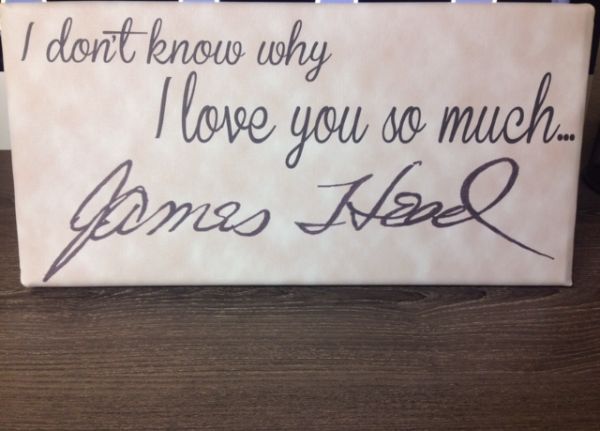 I don't know why
I love you so much...
James Head